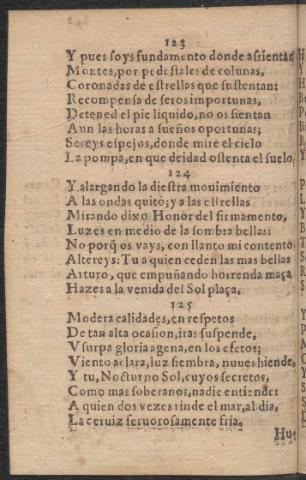 123
Y pues soys fundamento donde assientan
Montes, por pedestales de colunas,
Coronadas de estrellas que sustentan:
Recompensa de seros importunas,
Detened el pie liquido, no os sientan
Aun las horas a sueños oportunas;
Sereys espejos, donde mire el cielo
La pompa, en que deidad ostenta el suelo,
124
Y alargando la diestra mouimiento
A las ondas quitò; y a las estrellas
Mirando dixo. Honor del firmamento,
Luzes en medio de la sombra bellas:
No porq̃ os vays, con llanto mi contento
Altereys: Tu a quien ceden las mas bellas
Arturo, que empuñando horrenda maça
Hazes a la venida del Sol plaça.
125
Modera calidades, en respetos
De tan alta ocasion, iras suspende,
Vsurpa gloria agena, en los efetos;
Viento aclara, luz siembra, nuues hiende,
Y tu, Nocturno Sol, cuyos secretos,
Como mas soberanos, nadie entiende:
A quien dos vezes rinde el mar, al dia,
La ceruiz feruorosamente fria.
Hu-